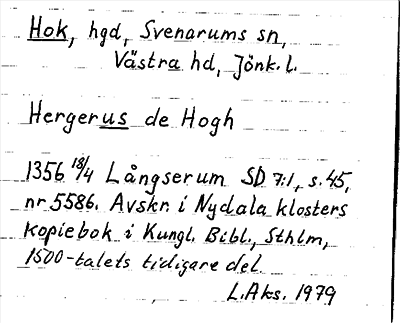 Hok, hgd, Svenarums sn,
Västra hd, Jönk. l.
Hergerus de Hogh
1356 18/4 Långserum SD 7:1, s. 45,
nr 5586. Avskr. i Nydala klosters
kopiebok i Kungl. Bibl., Sthlm,
1500-talets tidigare del.
L. Aks. 1979